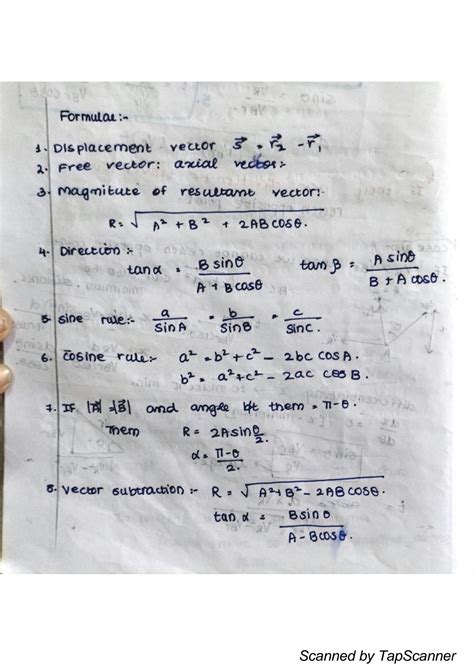 Formulae:-
1. Displacement vector s⃗ = r⃗₂ - r⃗₁
2. Free vector: axial vector:-
3. Magnitute of resultant vector:-
R = √A² + B² + 2AB cosθ.
4. Direction :-
tanα = B sinθ / A + B cosθ    tan β = A sinθ / B + A cosθ.
5. sine rule:- a / sin A = b / sin B = c / sin C.
6. Cosine rule:- a² = b² + c² - 2bc cos A.
b² = a² + c² - 2ac cos B.
7. If |A⃗| = |B⃗| and angle b/t them = π-θ.
Them R = 2A sin θ/2.
α = π-θ / 2.
8. Vector subtraction :- R = √A² + B² - 2AB cosθ.
tan α = B sin θ / A - B cosθ.
Scanned by TapScanner